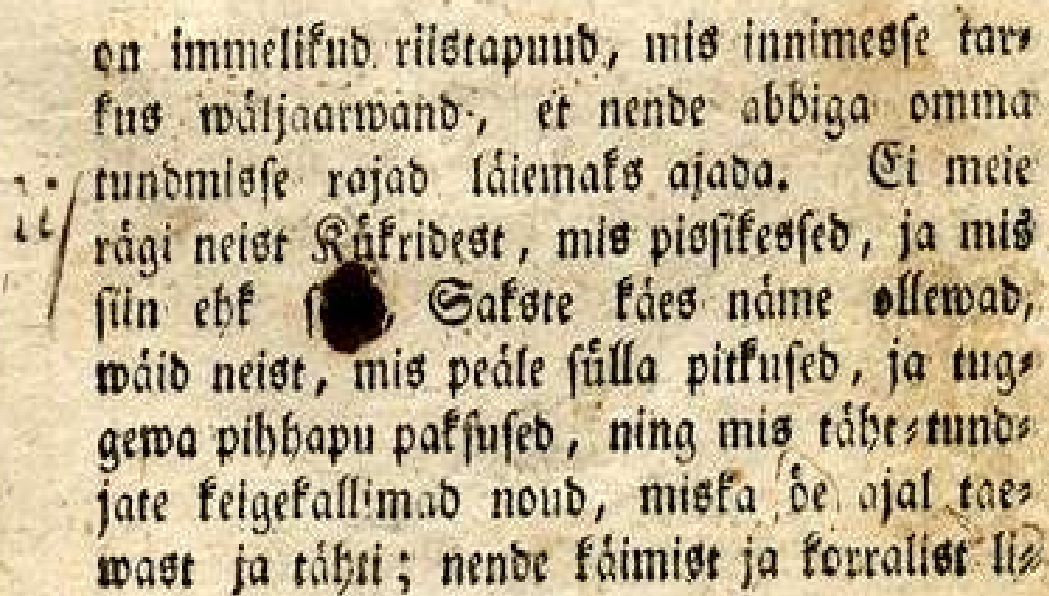 on immelikud riistapuud, mis innimesse tar⸗
kus wäljaarwand, et nende abbiga omma
tundmisse rajad läiemaks ajada. Ei meie
rägi neist Kükridest, mis pissikessed, ja mis
siin ehk Sakste käes näme ollewad,
wäid neist, mis peäle sülla pitkused, ja tug⸗
gewa pihhapu paksused, ning mis tähe⸗tund⸗
jate keigekallimad noud, miska öe ajal tae⸗
wast ja tähti; nende käimist ja korralist li⸗